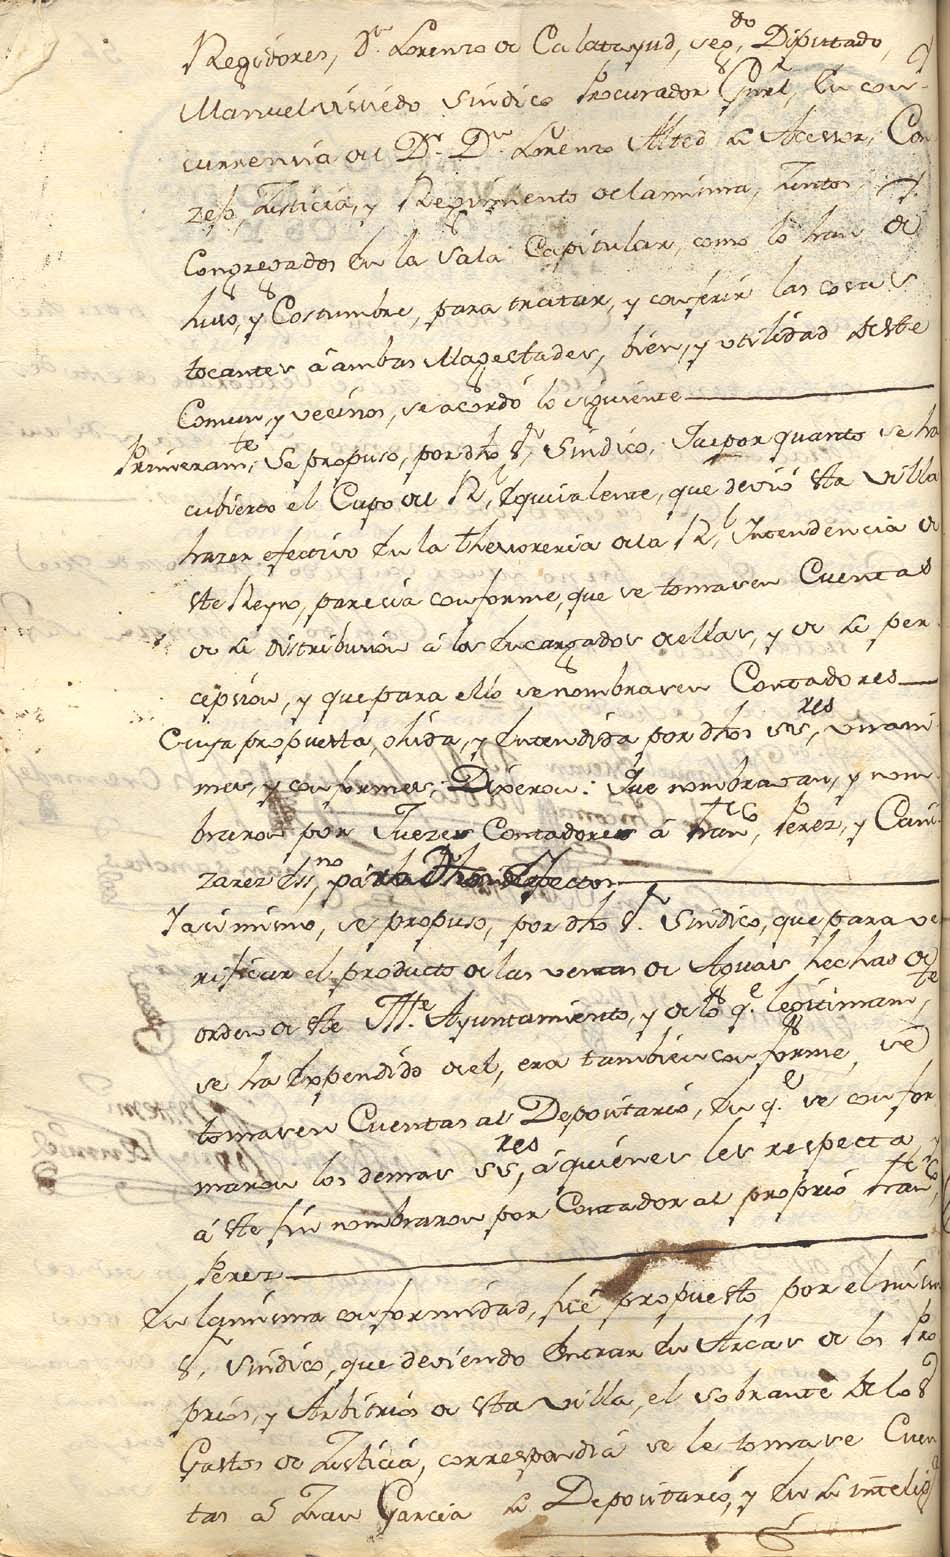 Regidores, Dn. Lorenzo de Calatayud, segdo. Diputado, y
Manuel Visiedo Sindico Procurador Gnrl, en con-
currencia del Dr. Dn. Lorenzo Alted su Acesor, Con
zejo, Justicia, y Regimiento de la misma, Juntos, y
Congregados en la Sala Capitular, como lo han de
huso, y Costumbre, para tratar, y conferir las cosas
tocantes â ambas Magestades, bien, y utilidad deste
Comun, y vecinos, se acordó lo siguiente
Primeramte. Se propuso, por dho Sr. Sindico, Que por quanto se ha
cubierto el Cupo del Rl. Equivalente, que devió esta Villa
hazer efectivo en la Thesoreria de la Rl. Intendencia de
este Reyno, parecia conforme, que se tomasen Cuentas
de su distribucion á los encargados dellas, y de su per
cepcion, y que para ello se nombrasen Contadores
Cuya propuesta, ohida, y entendida por dhos SSres, unani
mes, y conformes; Dixeron: Que nombravan, y nom
braron por Juezes Contadores á Franco. Perez, y Cañi-
zarez Essno, para dhos efectos
Y asimismo, se propuso, por dho Sr. Sindico, que para ve
rificar el producto de las ventas de Aguas hechas de
orden de este Ille. Ayuntamiento, y de lo qe. legitimamte.
se ha expendido del, era tambien conforme, se
tomasen Cuentas al Depositario, en qe. se confor
maron los demas SSres, á quienes les respecta, y
á este fin nombraron por Contador al proprio Franco.
Perez
En la misma conformidad, fué propuesto por el mismo
Sr. Sindico, que deviendo entrar en Arcas de los Pro
prios, y Arbitrios de esta Villa, el sobrante de los
Gastos de Justicia, correspondiá se le tomase Cuen
tas á Juan Garcia su Depositario, y en su intelig